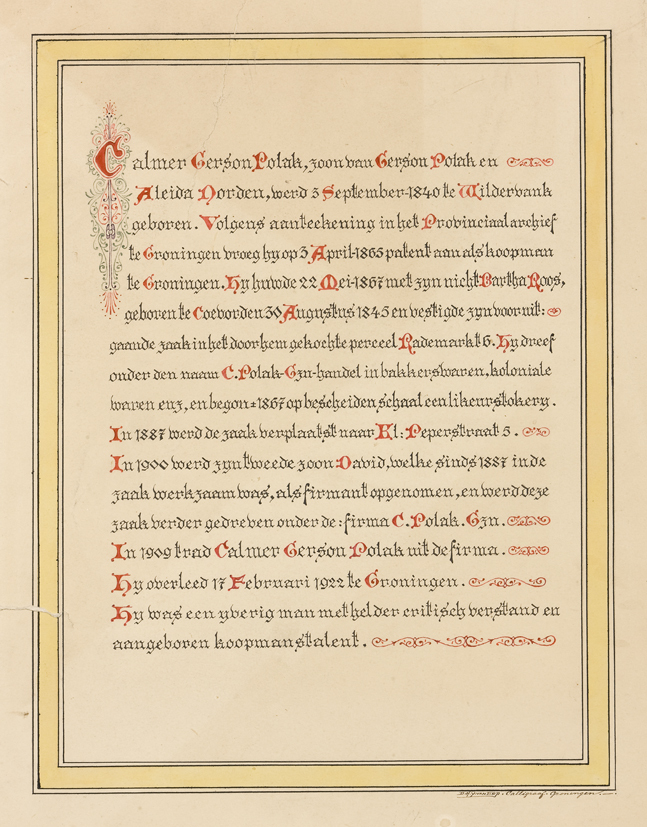 Calmer Gerson Polak, zoon van Gerson Polak en
Aleida Norden, werd 3 September 1840 te Wildervank
geboren. Volgens aanteekening in het Provinciaal archief
te Groningen vroeg hy op 3 April 1865 patent aan als koopman
te Groningen. Hy huwde 22 Mei 1867 met zyn nicht Bartha Roos,
geboren te Coevorden 30 Augustus 1845 en vestigde zyn vooruit:
gaande zaak in het door hem gekochte perceel Rademarkt 6. Hy dreef
onder den naam C. Polak Gzn handel in bakkerswaren, koloniale
waren enz, en begon = 1867 op bescheiden schaal een likeurstokery.
In 1887 werd de zaak verplaatst naar Kl: Peperstraat 5.
In 1900 werd zyn tweede zoon David, welke sinds 1887 in de
zaak werkzaam was, als firmant opgenomen, en werd deze
zaak verder gedreven onder de: firma C. Polak. Gzn.
In 1909 trad Calmer Gerson Polak uit de firma.
Hy overleed 17 Februari 1922 te Groningen.
Hy was een yverig man met helder critisch verstand en
aangeboren koopmanstalent.
Calligraaf. Groningen